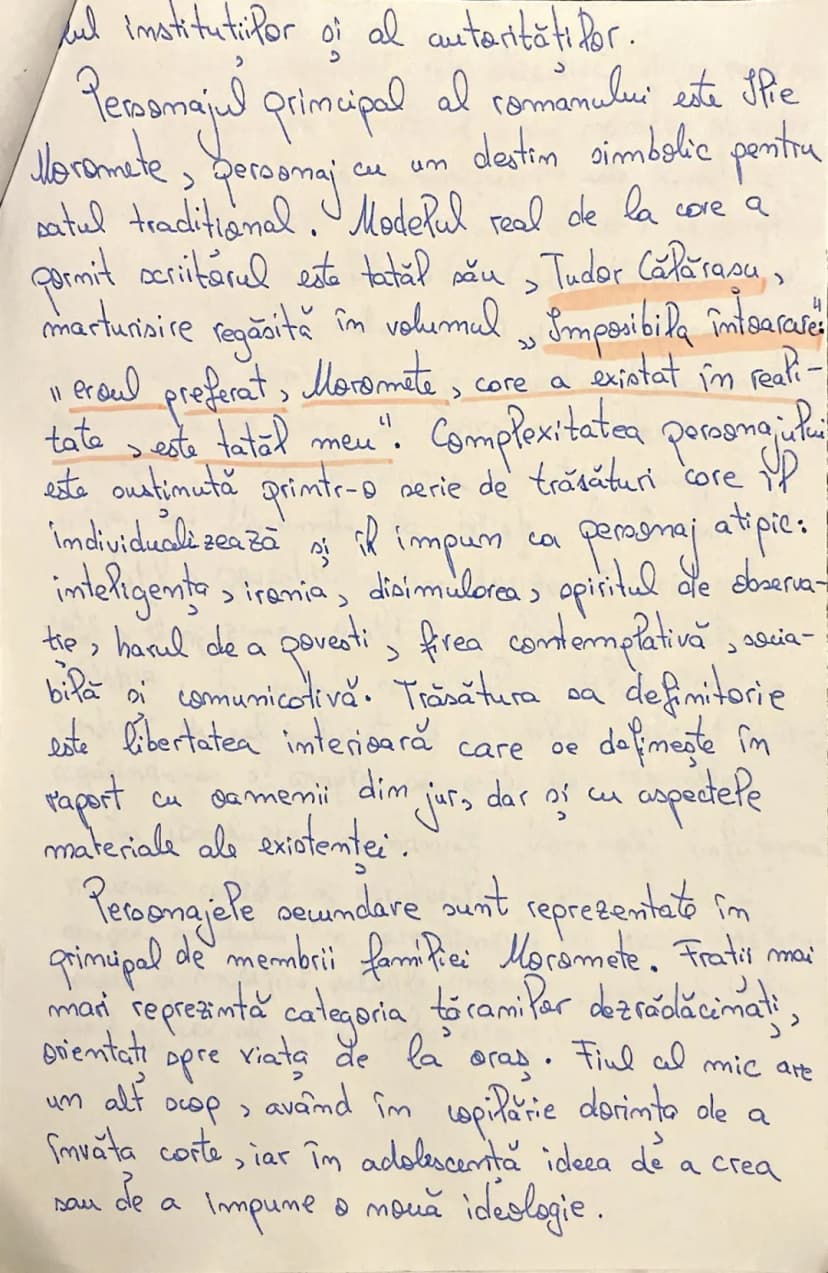 lul instituțiilor și al autorităților.
Personajul principal al romanului este Ilie
Moromete, personaj cu un destin simbolic pentru
satul tradițional. Modelul real de la care a
pornit scriitorul este tatăl său, Tudor Călărașu,
marturisire regăsită în volumul „Imposibila întoarcere"
"eroul preferat, Moromete, care a existat în reali-
tate, este tatăl meu". Complexitatea personajului
este susținută printr-o serie de trăsături care îl
individualizează și îl impun ca personaj atipic:
inteligența, ironia, disimularea, spiritul de observa-
ție, harul de a povesti, firea contemplativă, socia-
bilă și comunicativă. Trăsătura sa definitorie
este libertatea interioară care se definește în
raport cu oamenii din jur, dar și cu aspectele
materiale ale existenței.
Personajele secundare sunt reprezentate în
principal de membrii familiei Moromete. Frații mai
mari reprezintă categoria țăranilor dezrădăcinați,
orientați spre viața de la oraș. Fiul cel mic are
un alt scop, având în copilărie dorința de a
învăța carte, iar în adolescență ideea de a crea
sau de a impune o nouă ideologie.